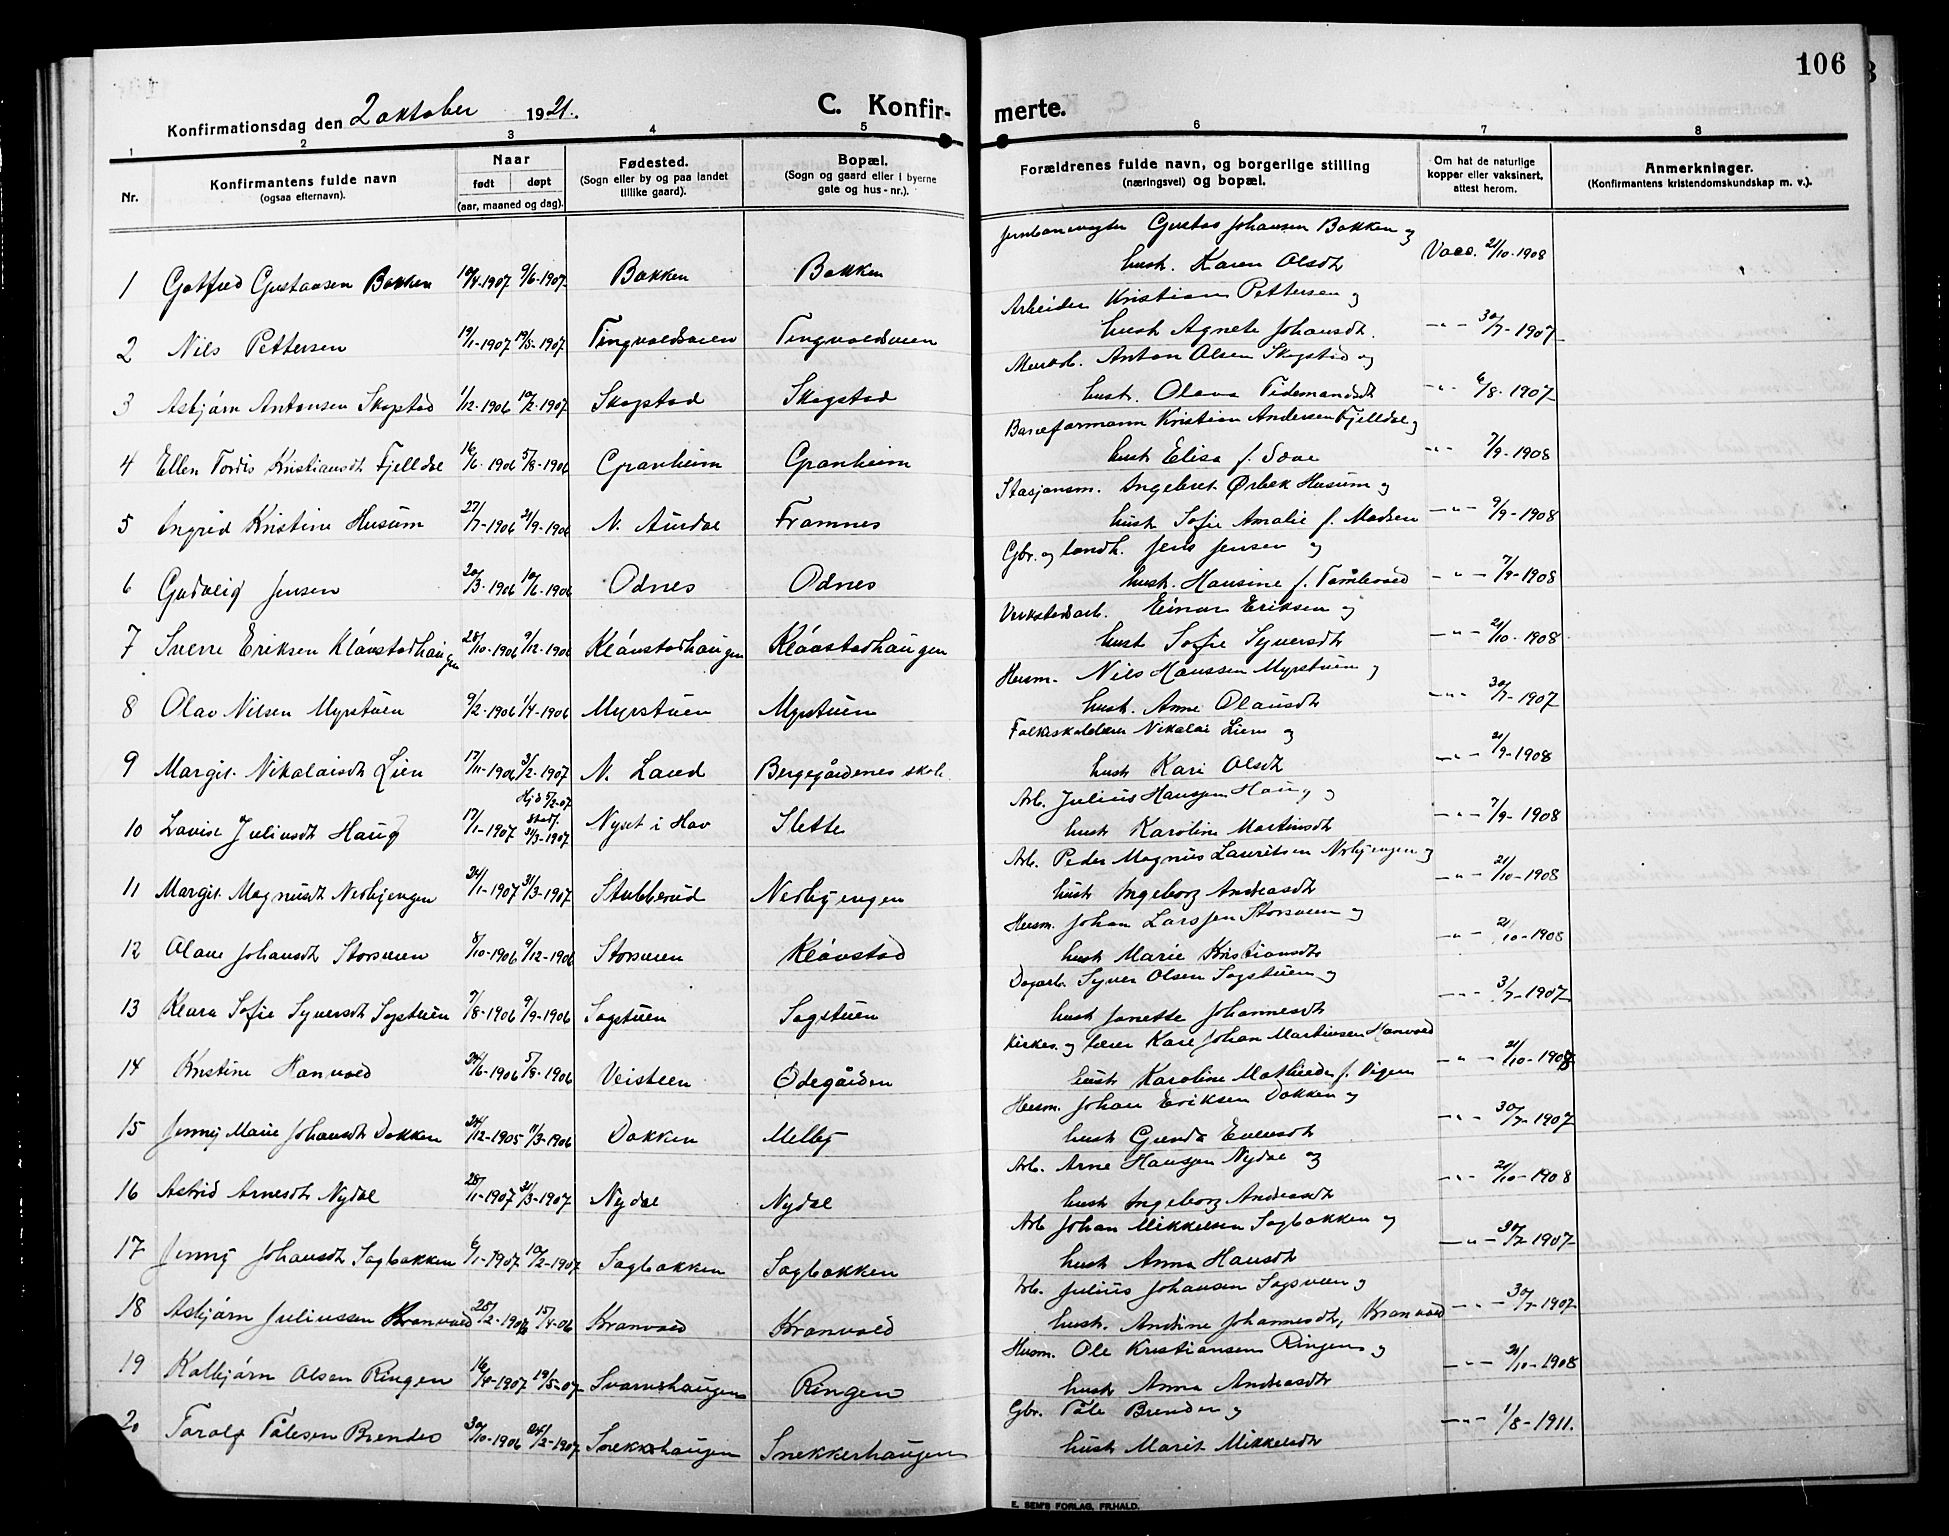 106
Konfirmationsdag den 2 oktober 1921.
C. Konfir-
merte.
1 2 3 4 5 6 7 8
Nr.
Konfirmantens fulde navn
(ogsaa efternavn).
Naar
født døpt
(aar, maaned og dag).
Fødested.
(Sogn eller by og paa landet
tillike gaard).
Bopæl.
(Sogn og gaard eller i byerne
gate og hus-nr.).
Forældrenes fulde navn, og borgerlige stilling
(næringsvei) og bopæl.
Om hat de naturlige
kopper eller vaksinert,
attest herom.
Anmerkninger.
(Konfirmantens kristendomskundskap m. v.).
1 Gotfred Gustavsen Bakken 10/4-1907 9/6-1907 Bakken Bakken
Jernbanevogter Gustav Johansen Bakken og
hust. Karen Olsdt Vacc. 21/10-1908
2 Nils Pettersen 19/1-1907 19/5-1907 Tingvoldsveien Tingvoldsveien
Arbeider Kristian Pettersen og
hust Agnete Johansdt. -"- 30/7-1907
3 Asbjørn Antonsen Skogstad 1/12-1906 10/2-1907 Skogstad Skogstad
Anton Olsen Skogstad og
hust. Olava Tidemandsdt -"- 6/8-1907
4 Ellen Tordis Kristiansdt Fjelldal 16/6-1906 5/8-1906 Granheim Granheim
Baneformann Kristian Andersen Fjelldal og
hust Elisa f. -"- 7/9-1908
5 Ingrid Kristine Husum 27/7-1906 21/9-1906 N. Aurdal Framnes
Stasjonsm. Ingebret Ørbek Husum og
hust Sofie Amalie f. Madsen -"- 9/9-1908
6 Gudveig Jensen 20/3-1906 10/6-1906 Odnes Odnes
Gbr. og landh. Jens Jensen og
hust. Hansine f. Tømlevold -"- 7/9-1908
7 Sverre Eriksen Kløvstadhaugen 28/10-1906 9/12-1906 Kløvstadhaugen Kløvstadhaugen
Verkstedsarb. Einar Eriksen og
hust Sofie Syversdt -"- 21/10-1908
8 Olav Nilsen Myrstuen 9/2-1906 1/4-1906 Myrstuen Myrstuen
Husm. Nils Hanssen Myrstuen og
hust. Anne Olausdt -"- 30/7-1907
9 Margit Nikolaisdt Lien 17/11-1906 3/2-1907 N. Land Bergegårdenes skole
Folkeskolelærer Nikolai Lien og
hust Kari Olsdt -"- 21/9-1908
10 Lovise Juliusdt Haug 17/1-1907 Hjd 5/2-07 stadf. 31/3-1907 Nyset i Hov Slette
Arb. Julius Hansen Haug og
hust Karoline Martinsdt -"- 7/9-1908
11 Margit Magnusdt Nerbyengen 24/1-1907 31/3-1907 Stubberud Nerbyengen
Arb. Peder Magnus Lauritsen Nerbyengen og
hust Ingeborg Andreasdt -"- 21/10-1908
12 Olava Johansdt Storsveen 8/10-1906 9/12-1906 Storsveen Kløvstad
Husm. Johan Larssen Storsveen og
hust Marie Kristiansdt -"- 21/10-1908
13 Klara Sofie Syversdt Sagstuen 9/8-1906 9/9-1906 Sagstuen Sagstuen
Dagarb. Syver Olsen Sagstuen og
hust Janette Johannesdt -"- 3/7-1907
14 Kristine Hanvold 24/6-1906 5/8-1906 Veisteen Ødegården
Kirkes. og lærer Karl Johan Martinsen Hanvold
hust Karoline Mathilde f. Vigen -"- 21/10-1908
15 Jenny Marie Johansdt Dokken 24/12-1905 11/3-1906 Dokken Melby
Husm. Johan Eriksen Dokken og
hust Gunda Evensdt -"- 30/7-1907
16 Astrid Arnesdt Nydal 28/1-1907 31/3-1907 Nydal Nydal
Arb. Arne Hanssen Nydal og
hust Ingeborg Andreasdt -"- 21/10-1908
17 Jenny Johansdt Sagbakken 6/1-1907 10/2-1907 Sagbakken Sagbakken
Arb Johan Mikkelsen Sagbakken og
hust Anna Hansdt -"- 30/7-1907
18 Asbjørn Juliussen Kranvold 25/2-1906 15/4-06 Kranvold Kranvold
Arb. Julius Johansen Sagsveen og
hust. Andrine Johannesdt, Kranvold -"- 30/7-1907
19 Kolbjørn Olsen Ringen 16/4-1907 19/5-07 Svarvarhaugen Ringen
Husm. Ole Kristiansen Ringen og
hust Anna Andreasdt -"- 21/10-1908
20 Torolf Pålesen Brenden 30/10-1906 24/2-1907 Snekkerhaugen Snekkerhaugen
Gbr. Påle Brenden og
hust Marit Mikkelsdt -"- 1/8-1911.
E. SEM'S FORLAG, FR.HALD.